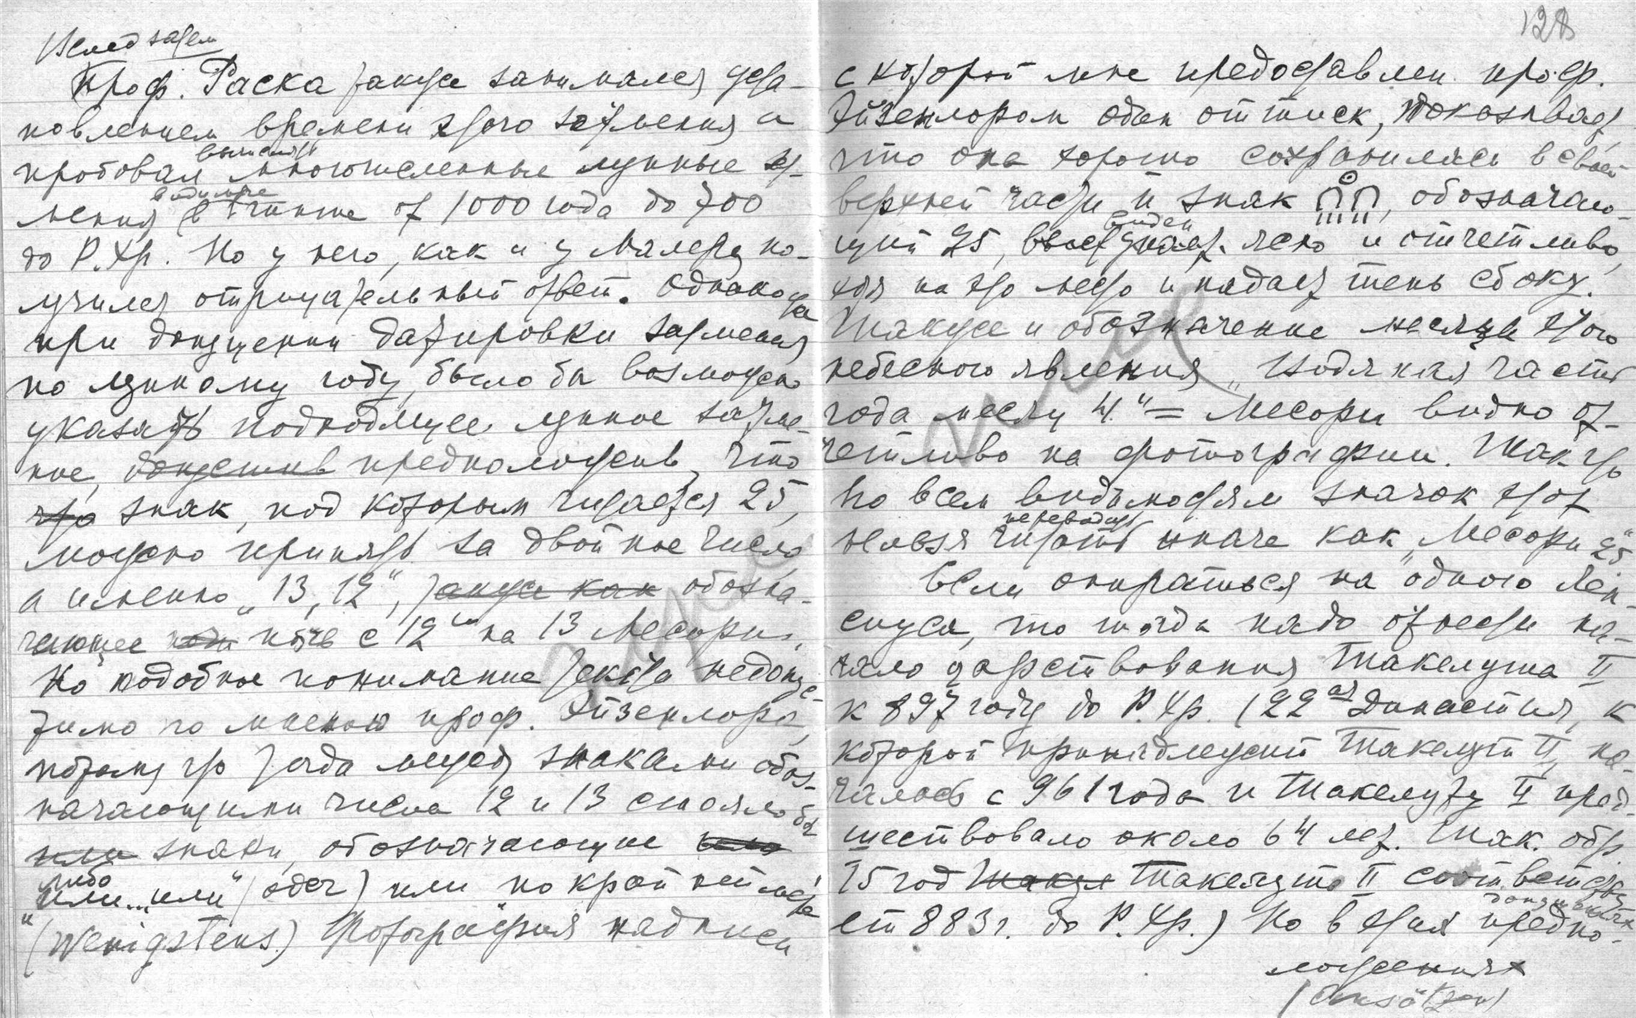 Вслед затем
Проф. Раска также занимался уста-
новлением времени этого затмения и
пробовал вычислять многочисленные лунные зат-
мения видимые в Египте от 1000 года до 700
до Р. Хр. Но у него, как и у Малера по-
лучился отрицательный ответ. Однако
при допущении датировки затмения
по лунному году, было бы возможно
указать подходящее лунное затме-
ние, допустив предположив, что
что знак, под которым читается 25,
можно принять за двойное число
а именно „13, 12“, также как обозна-
чающее ночь с 12 на 13 Месори.
Но подобное понимание текста недопус-
тимо по мнению проф. Эйзенлора,
потому что тогда между знаками обоз-
начающими числа 12 и 13 стояло бы
или знаки, обозначающие
либо
или... „или“ (oder) или по крайней мере
"(Wenigstens.) Фотография надписи
128
с которой мне предоставлен проф.
Эйзенлором один оттиск, показывает
что она хорошо сохранилась в своей
верхней части и знак ∩∩, обозначаю-
щий 25, виден ясно и отчетливо,
хотя на это место и падает тень сбоку.
Также и обозначение месяца этого
небесного явления „Водяная часть
года месяц 4.“ = Месори видно от-
четливо на фотографии. Так что
по всем видимостям значок этот
нельзя читать переводить иначе как „Месори 25“
Если опираться на одного Леп-
сиуса, то тогда надо отнести на-
чало царствования Такелута II
к 897 году до Р. Хр. (22ая династия, к
которой принадлежит Такелут II, на-
чалась с 961 года и Такелуту II пред-
шествовало около 64 лет. Так. обр.
15 год Такелута II соответству
ет 883 г. до Р. Хр.) Но в этих предпо-
ложениях